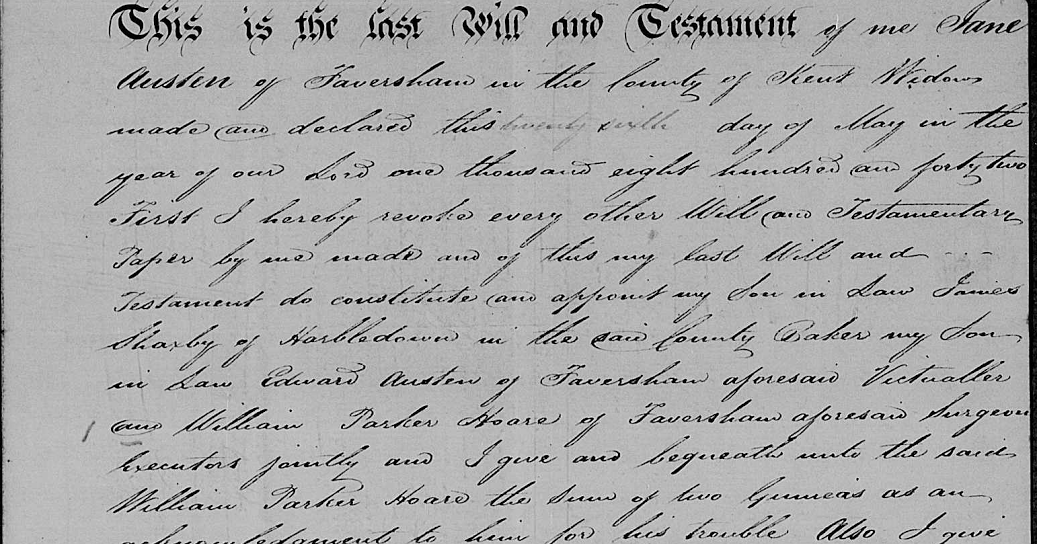 This is the last Will and Testament of me Jane
Austen of Faversham in the County of Kent Widow
made and declared this twenty sixth day of May in the
year of our Lord one thousand eight hundred and forty two
First I hereby revoke every other Will and Testamentary
Paper by me made and of this my last Will and - - -
Testament do constitute and appoint my Son in Law James
Shaxby of Harbledown in the said County Baker my Son
in Law Edward Austen of Faversham aforesaid Victualler
and William Parker Hoare of Faversham aforesaid Surgeon
Executors jointly and I give and bequeath unto the said
William Parker Hoare the sum of two Guineas as an
acknowledgment to him for his trouble Also I give